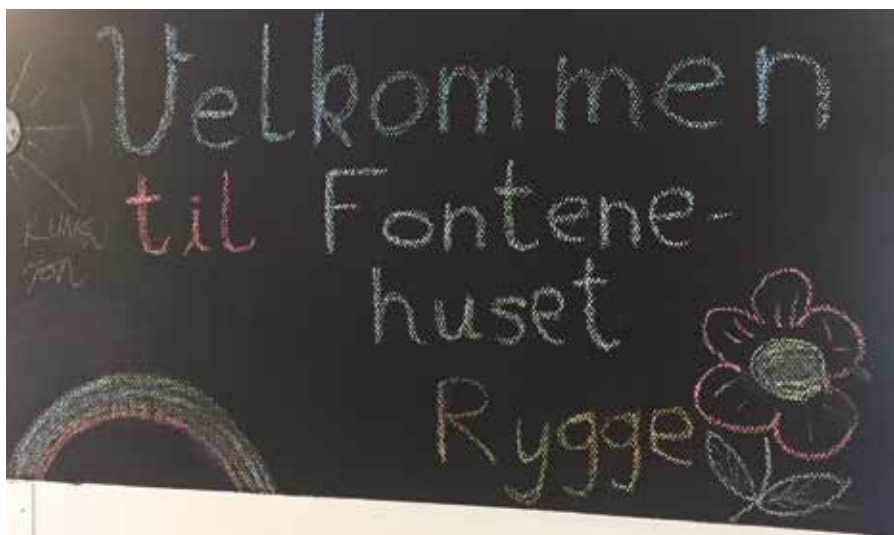 Velkommen
til Fontene-
huset
Rygge